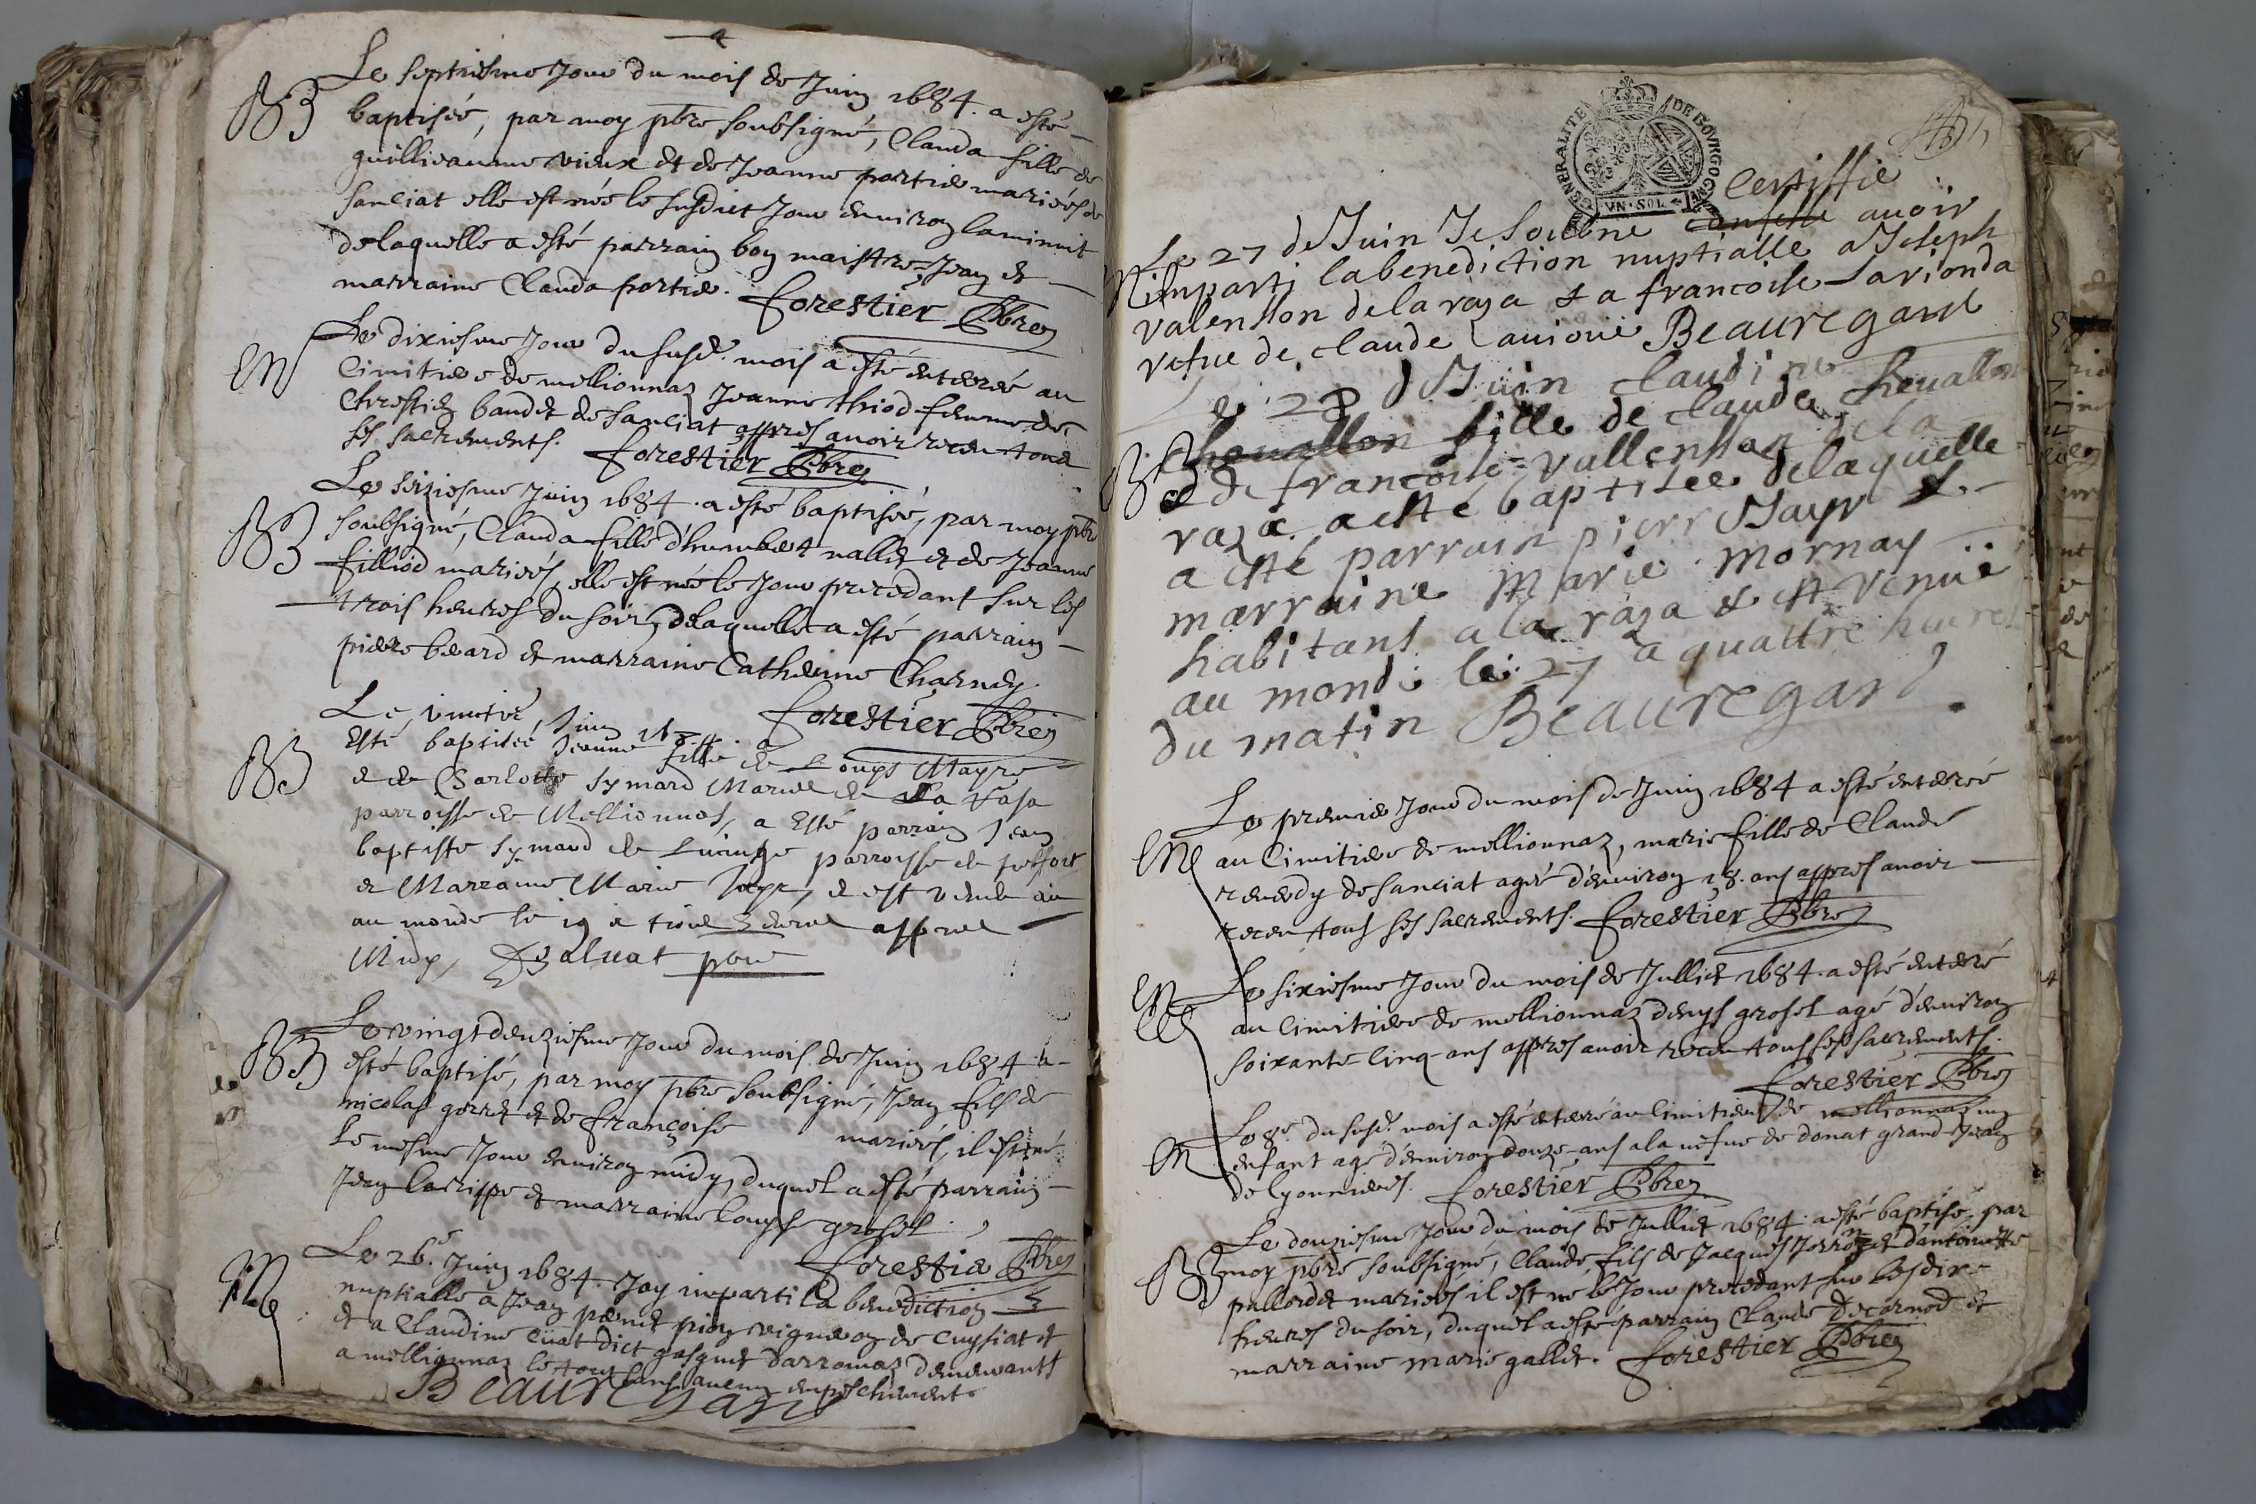 Le septiesme Jour du mois de Juin 1684. a esté
B baptisée, par moy pbre soubsigné, Clauda fille de
guillieaume vieux et de Jeanne portier mariés de
sanciat elle est née le susdict Jour environ la minuit
de laquelle a esté parrain bon maistre Jean et
marraine Clauda portier. forestier Pbre
Le dixiesme Jour du susd. mois a esté enterrée au
M Cimitiere de mellionnaz Jeanne thiod femme de
Chrestien baudet de sanciat appres avoir receu tous
ses sacrements. forestier Pbre
Le seiziesme Juin 1684. a esté baptisée, par moy pbre
B soubsigné, Clauda fille d'humbert nallet et de Jeanne
filliod mariés, elle est née le Jour precedant sur les
trois heures du soir, de laquelle a esté parrain
pierre beard et marraine Catherine Charnay.
forestier Pbre
Le Juin 1684. a
B Esté baptisée Jeanne fille de Louys Mayre
e de Charlotte Symard Mariés de la rasa
parroisse de Mellionnas, a Esté parrain Jean
baptiste Symard de parroisse de
et Marraine Marie e est venue au
au monde le 19 a trois heures appres
Midy,
Le vingt deuziesme Jour du mois de Juin 1684 a
B esté baptisé, par moy pbre soubsigné, Jean fils de
nicolas gorret et de françoise mariés, il est né
le mesme Jour environ midy, duquel a esté parrain
Jean larippe et marraine Louyse groset.
forestier Pbre
Le 26.e Juin 1684. Jay imparti la benediction
M nuptialle a Jean pernet pion vigneron de Cuysiat et
et a Claudine cuat dict gasquet d'arromas demeurants
a mellionnaz le tout sans aucun enpeschement
Beauregard
GENERALITE DE BOURGOGNE
UN · SOL
Certiffie
Le 27 de Juin Je Soussigné confesse avoir
M imparti la benediction nuptialle a Joseph
Valension de la raza & a francoise Larionda
vefve de claude Beauregard
Le 28 d Juin claudine
B chevallon fille de claude chevallon
& de francoise vallension de la
raza a esté baptisée de laquelle
a esté parrain pierr Mayr &
marraine Marie Mornay
habitans a la raza & est venuë
au monde le 27 a quattre heures
du matin Beauregard
Le premier Jour du mois de Juin 1684 a esté enterrée
M au Cimitiere de mellionnaz, marie fille de Claude
renevdy de sanciat agée d'environ 18. ans appres avoir
receu tous ses sacrements. forestier Pbre
M Le sixiesme Jour du mois de Julliet 1684. a esté enterré
au Cimitiere de mellionnaz denys groset agé d'environ
soixante cinq ans appres avoir receu tous ses sacrements.
forestier Pbre
Le 8.e du susd. mois a esté enterré au Cimitiere de mellionnaz un
M enfant agé d'environ douze ans a la vefve de donat grand Jean
de lyonnieres. forestier Pbre
Le douziesme Jour du mois de Julliet 1684. a esté baptisé, par
B moy pbre soubsigné, Claude fils de Jacques et d'antoinette
pallordet mariés il est né le Jour precedant sur les dix
heures du soir, duquel a esté parrain Claude Decornod et
marraine marie gallet. forestier Pbre